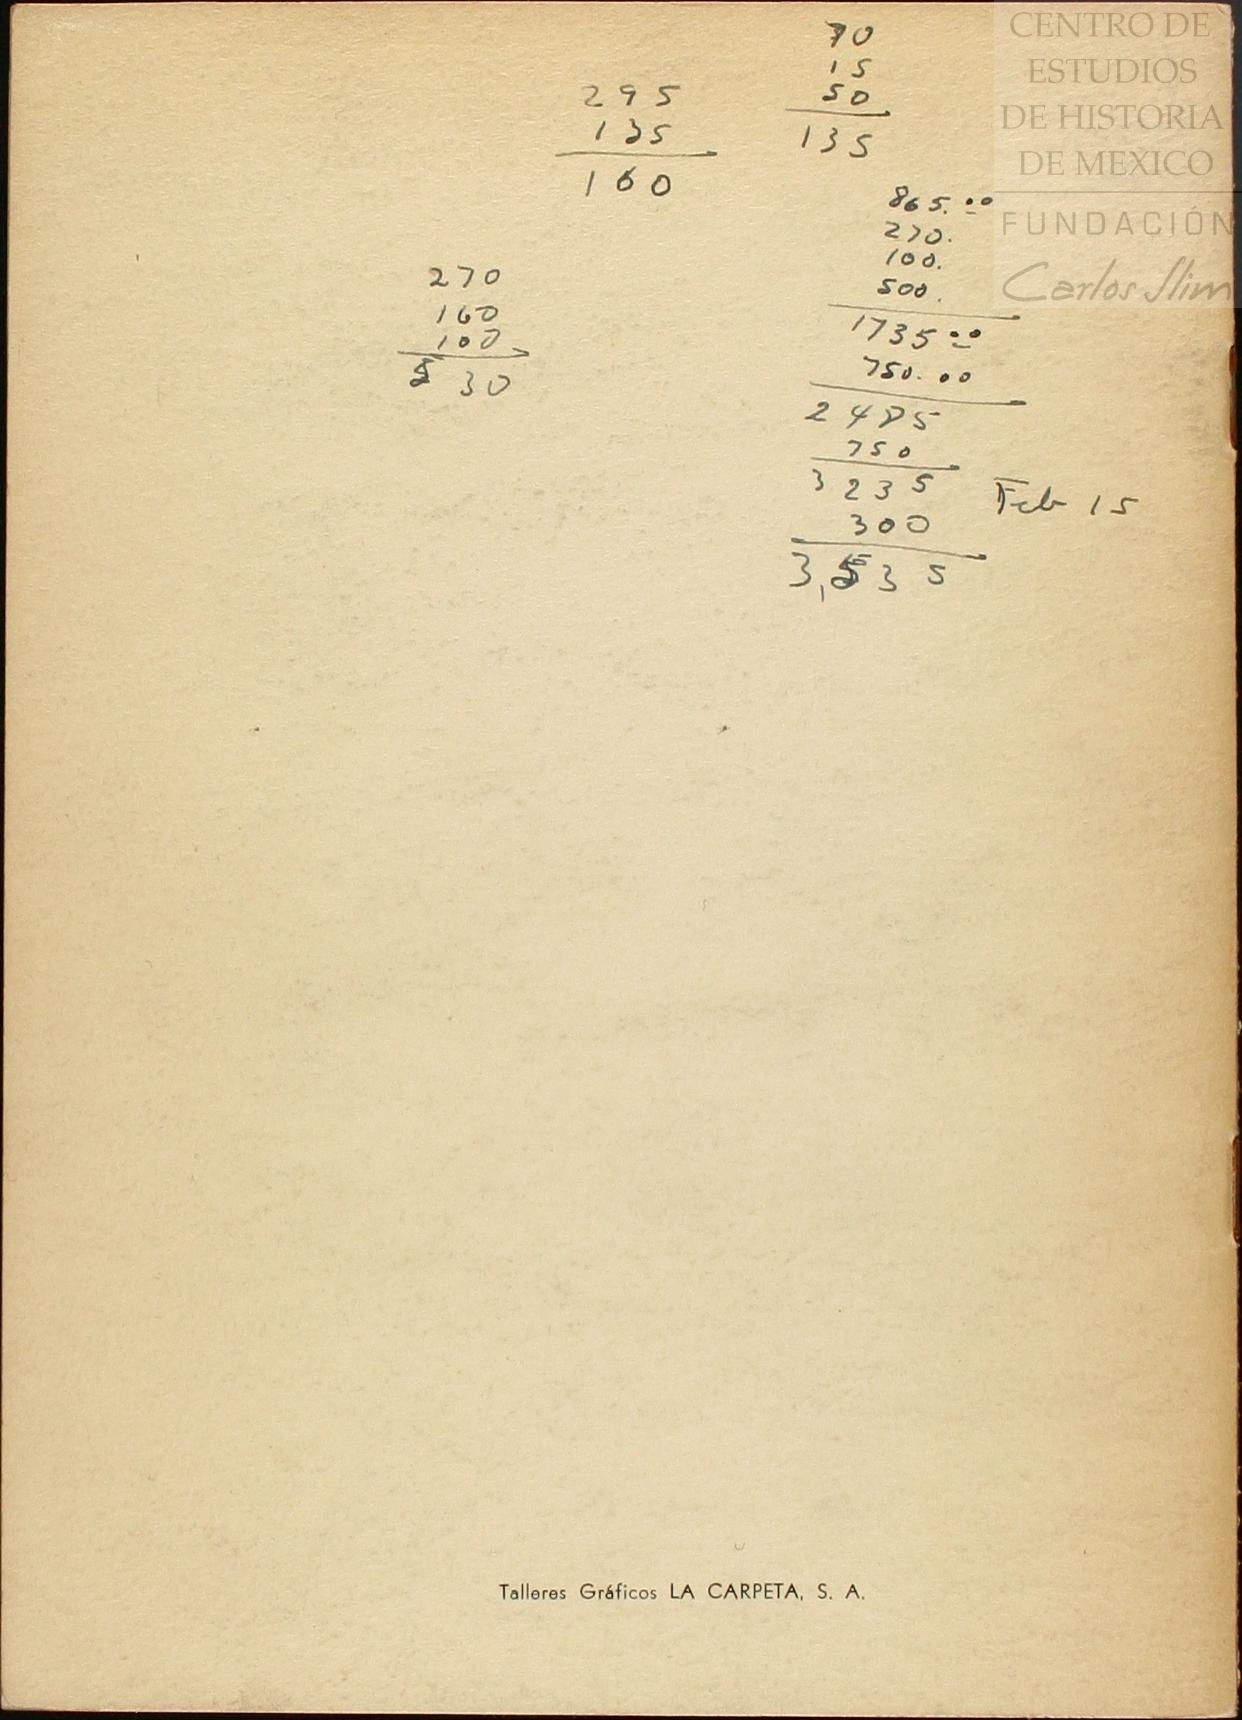 70
15
50
135
295
135
160
865.00
270.
100.
500.
1735 00
750.00
2485
750
3235
300
3,535
Feb 15
270
160
100
530
CENTRO DE
ESTUDIOS
DE HISTORIA
DE MEXICO
FUNDACIÓN
Carlos Slim
Talleres Gráficos LA CARPETA, S. A.